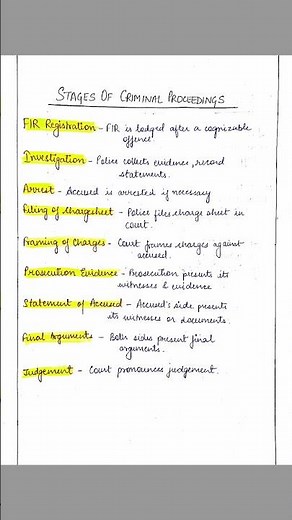 STAGES OF CRIMINAL PROCEEDINGS
FIR Registration - FIR is lodged after a cognizable
offence.
Investigation - Police collects evidence, record
statements.
Arrest - Accused is arrested if necessary
Filing of Chargesheet - Police files charge sheet in
court.
Framing of Charges - Court frames charges against
accused.
Prosecution Evidence - Prosecution presents its
witnesses & evidence
Statement of Accused - Accused's side presents
its witnesses or documents.
Final Arguments - Both sides present final
arguments.
Judgement - Court pronounces judgement.